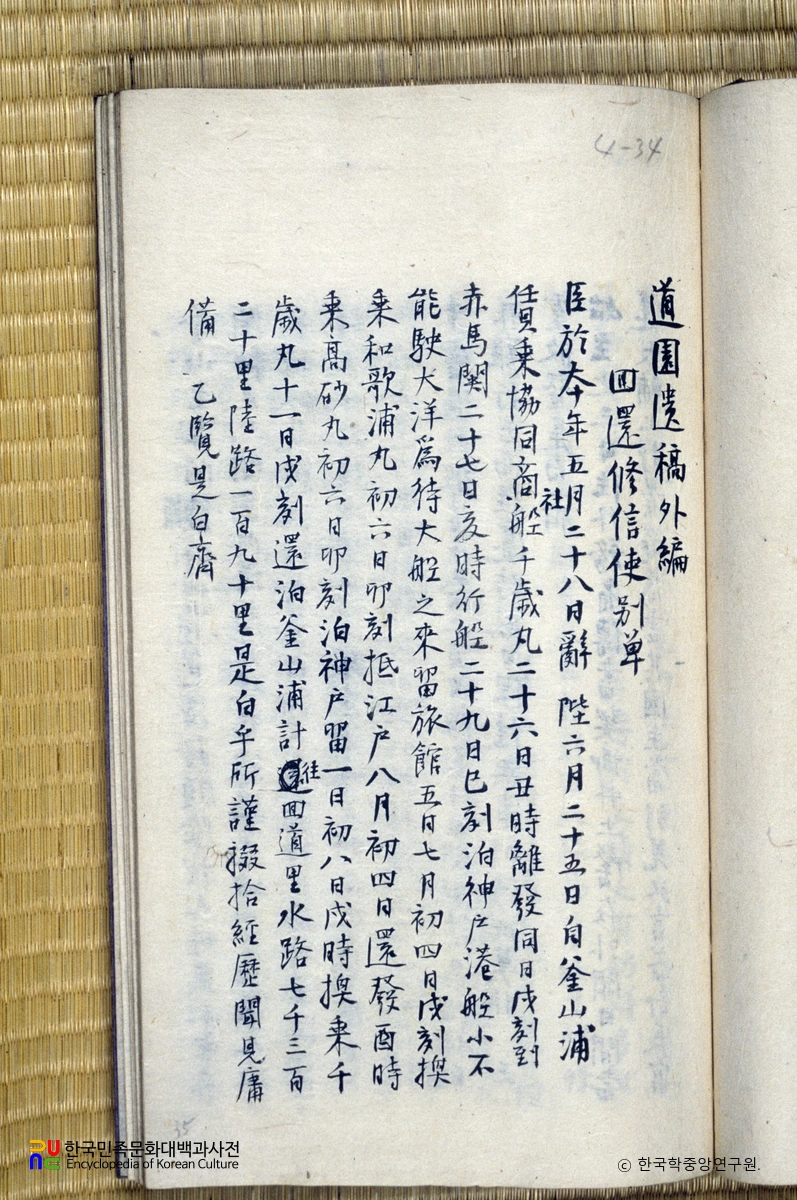 4-34
道園遺稿外編
回還修信使別單
臣於本年五月二十八日辭 陛六月二十五日自釜山浦
賃乘協同商社船千歲丸二十六日丑時離發同日戌刻到
赤馬關二十七日亥時行船二十九日巳刻泊神戶港船小不
能駛大洋爲待大船之來留旅館五日七月初四日戌刻換
乘和歌浦丸初六日卯刻抵江戶八月初四日還發酉時
乘高砂丸初六日卯刻泊神戶留一日初八日戌時換乘千
歲丸十一日戌刻還泊釜山浦計往回道里水路七千三百
二十里陸路一百九十里是白乎所謹掇拾經歷聞見庸
備 乙覽是白齊
35
한국민족문화대백과사전
Encyclopedia of Korean Culture
ⓒ 한국학중앙연구원.